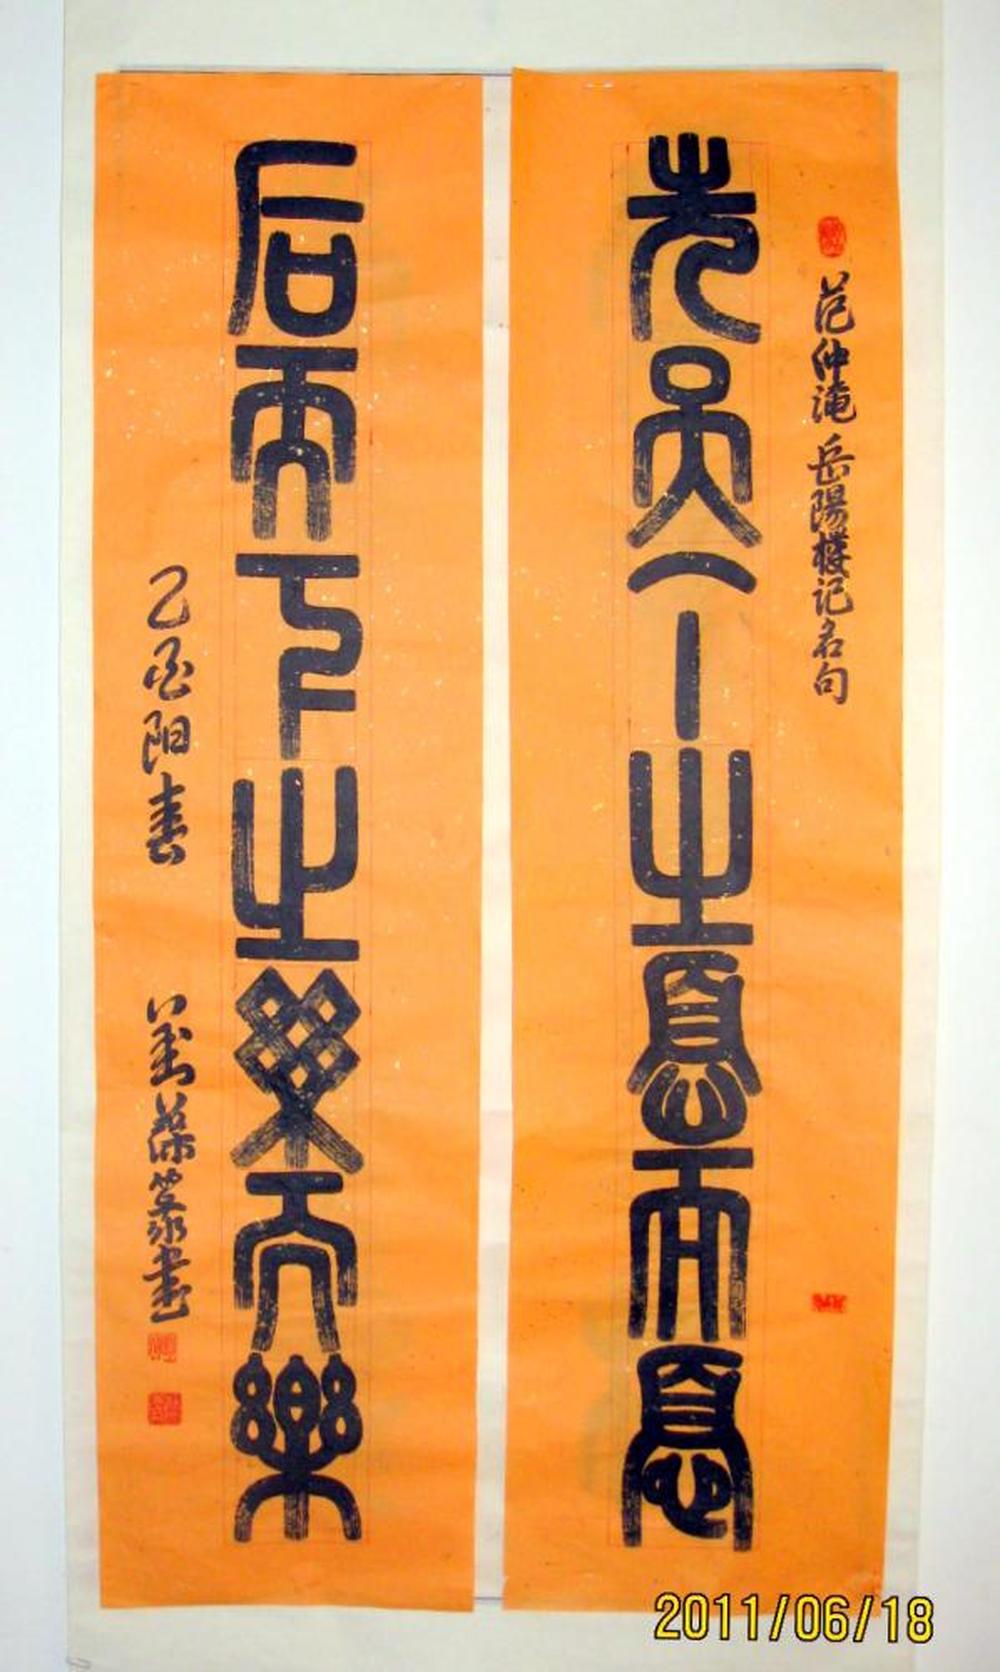 范仲淹岳陽樓记名句
先天下之憂而憂
后天下之樂而樂
乙酉阳春 葆篆書